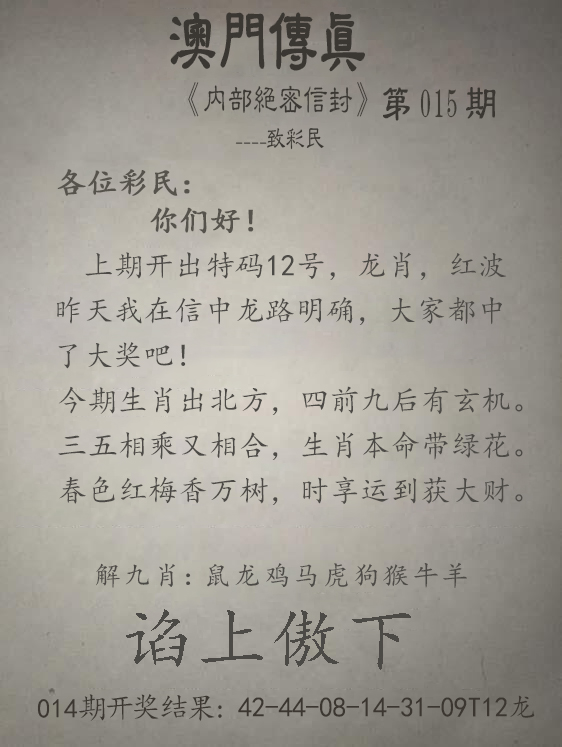 澳門傳眞
《内部絕密信封》第015期
----致彩民
各位彩民：
你们好！
上期开出特码12号，龙肖，红波
昨天我在信中龙路明确，大家都中
了大奖吧！
今期生肖出北方，四前九后有玄机。
三五相乘又相合，生肖本命带绿花。
春色红梅香万树，时享运到获大财。
解九肖：鼠龙鸡马虎狗猴牛羊
谄上傲下
014期开奖结果：42-44-08-14-31-09T12龙